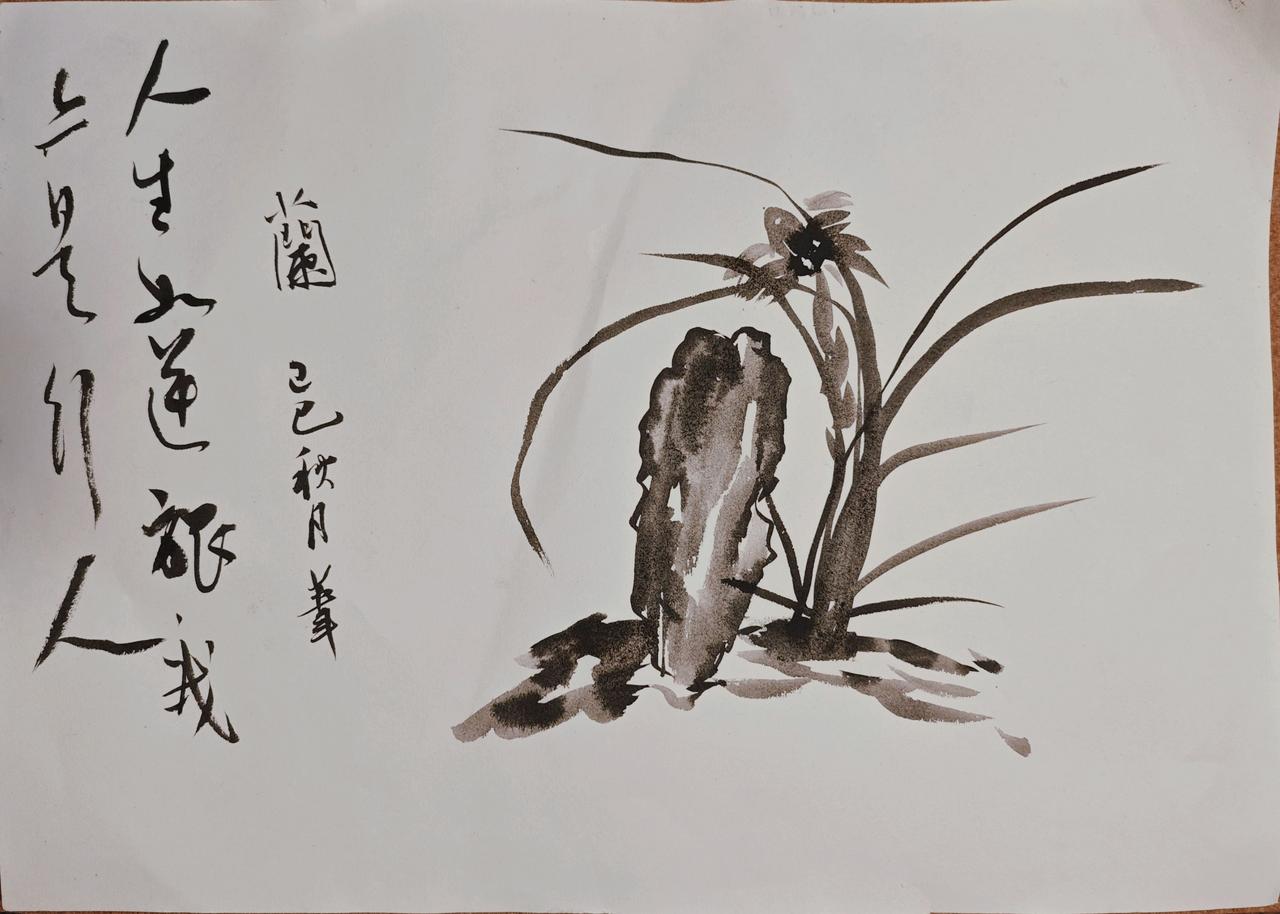 蘭 己巳秋月
人生如逆旅我
亦是行人